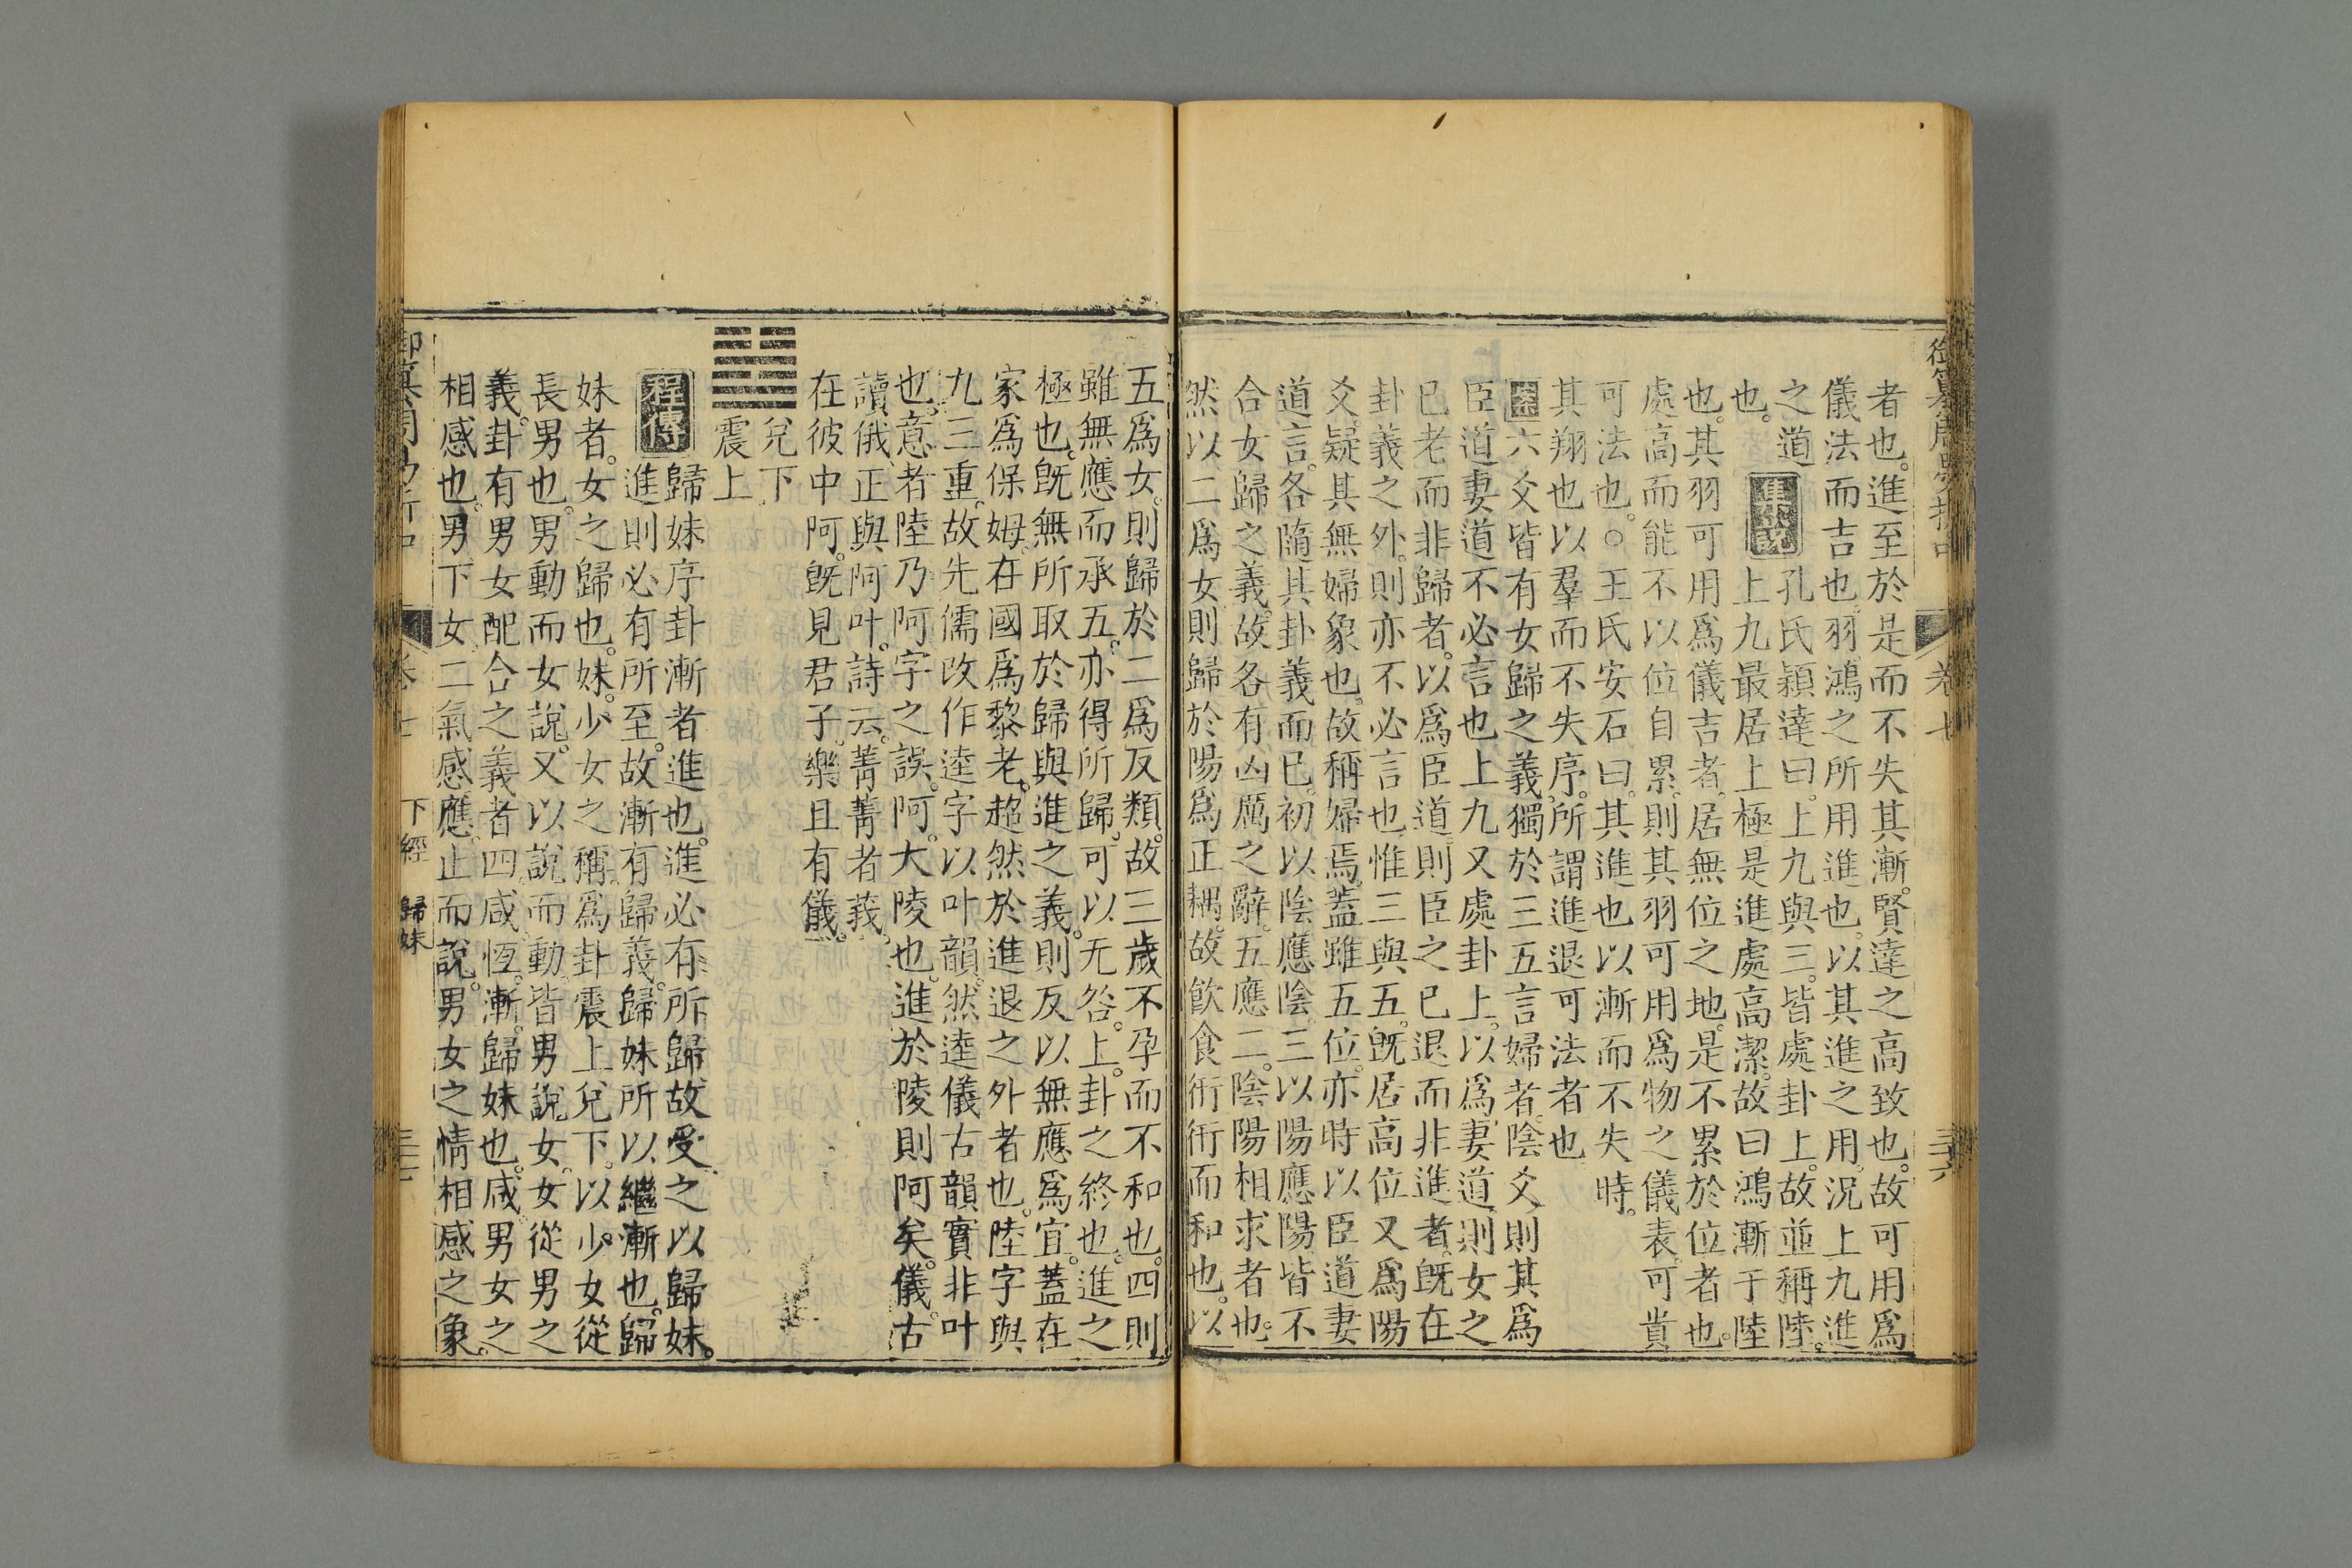 者也。進至於是而不失其漸。賢達之高致也。故可用爲
儀法而吉也。羽。鴻之所用進也。以其進之用。況上九進
之道
集說
孔氏穎達曰。上九與三。皆處卦上。故並稱陸。
上九最居上極。是進處高潔。故曰鴻漸于陸
也。其羽可用爲儀吉者。居無位之地。是不累於位者也。
處高而能不以位自累。則其羽可用爲物之儀表。可貴
可法也。○王氏安石曰。其進也以漸而不失時。
其翔也以羣而不失序。所謂進退可法者也
案六爻皆有女歸之義。獨於三五言婦者。陰爻。則其爲
臣道妻道不必言也。上九又處卦上。以爲妻道。則女之
已老而非歸者。以爲臣道。則臣之已退而非進者。旣在
卦義之外。則亦不必言也。惟三與五。旣居高位。又爲陽
爻。疑其無婦象也。故稱婦焉。蓋雖五位。亦時以臣道妻
道言。各隨其卦義而已。初以陰應陰。三以陽應陽。皆不
合女歸之義。故各有凶厲之辭。五應二。陰陽相求者也。
然以二爲女。則歸於陽爲正耦。故飲食衎衎而和也。以
五爲女。則歸於二爲反類。故三歲不孕而不和也。四則
雖無應而承五。亦得所歸。可以无咎。上。卦之終也。進之
極也。旣無所取於歸與進之義。則反以無應爲宜。蓋在
家爲保姆。在國爲黎老。超然於進退之外者也。陸字與
九三重。故先儒改作逵字以叶韻。然逵儀古韻實非叶
也。意者陸乃阿字之誤。阿。大陵也。進於陵則阿矣。儀。古
讀俄。正與阿叶。詩云。菁菁者莪。
在彼中阿。旣見君子。樂且有儀。
兌下
震上
程傳
歸妹序卦漸者進也。進必有所歸故受之以歸妹。
進則必有所至。故漸有歸義。歸妹所以繼漸也。歸
妹者。女之歸也。妹。少女之稱。爲卦震上兌下。以少女從
長男也。男動而女說。又以說而動。皆男說女。女從男之
義。卦有男女配合之義者四。咸。恆。漸。歸妹也。咸。男女之
相感也。男下女。二氣感應。止而說。男女之情相感之象。
卷七
下經 歸妹